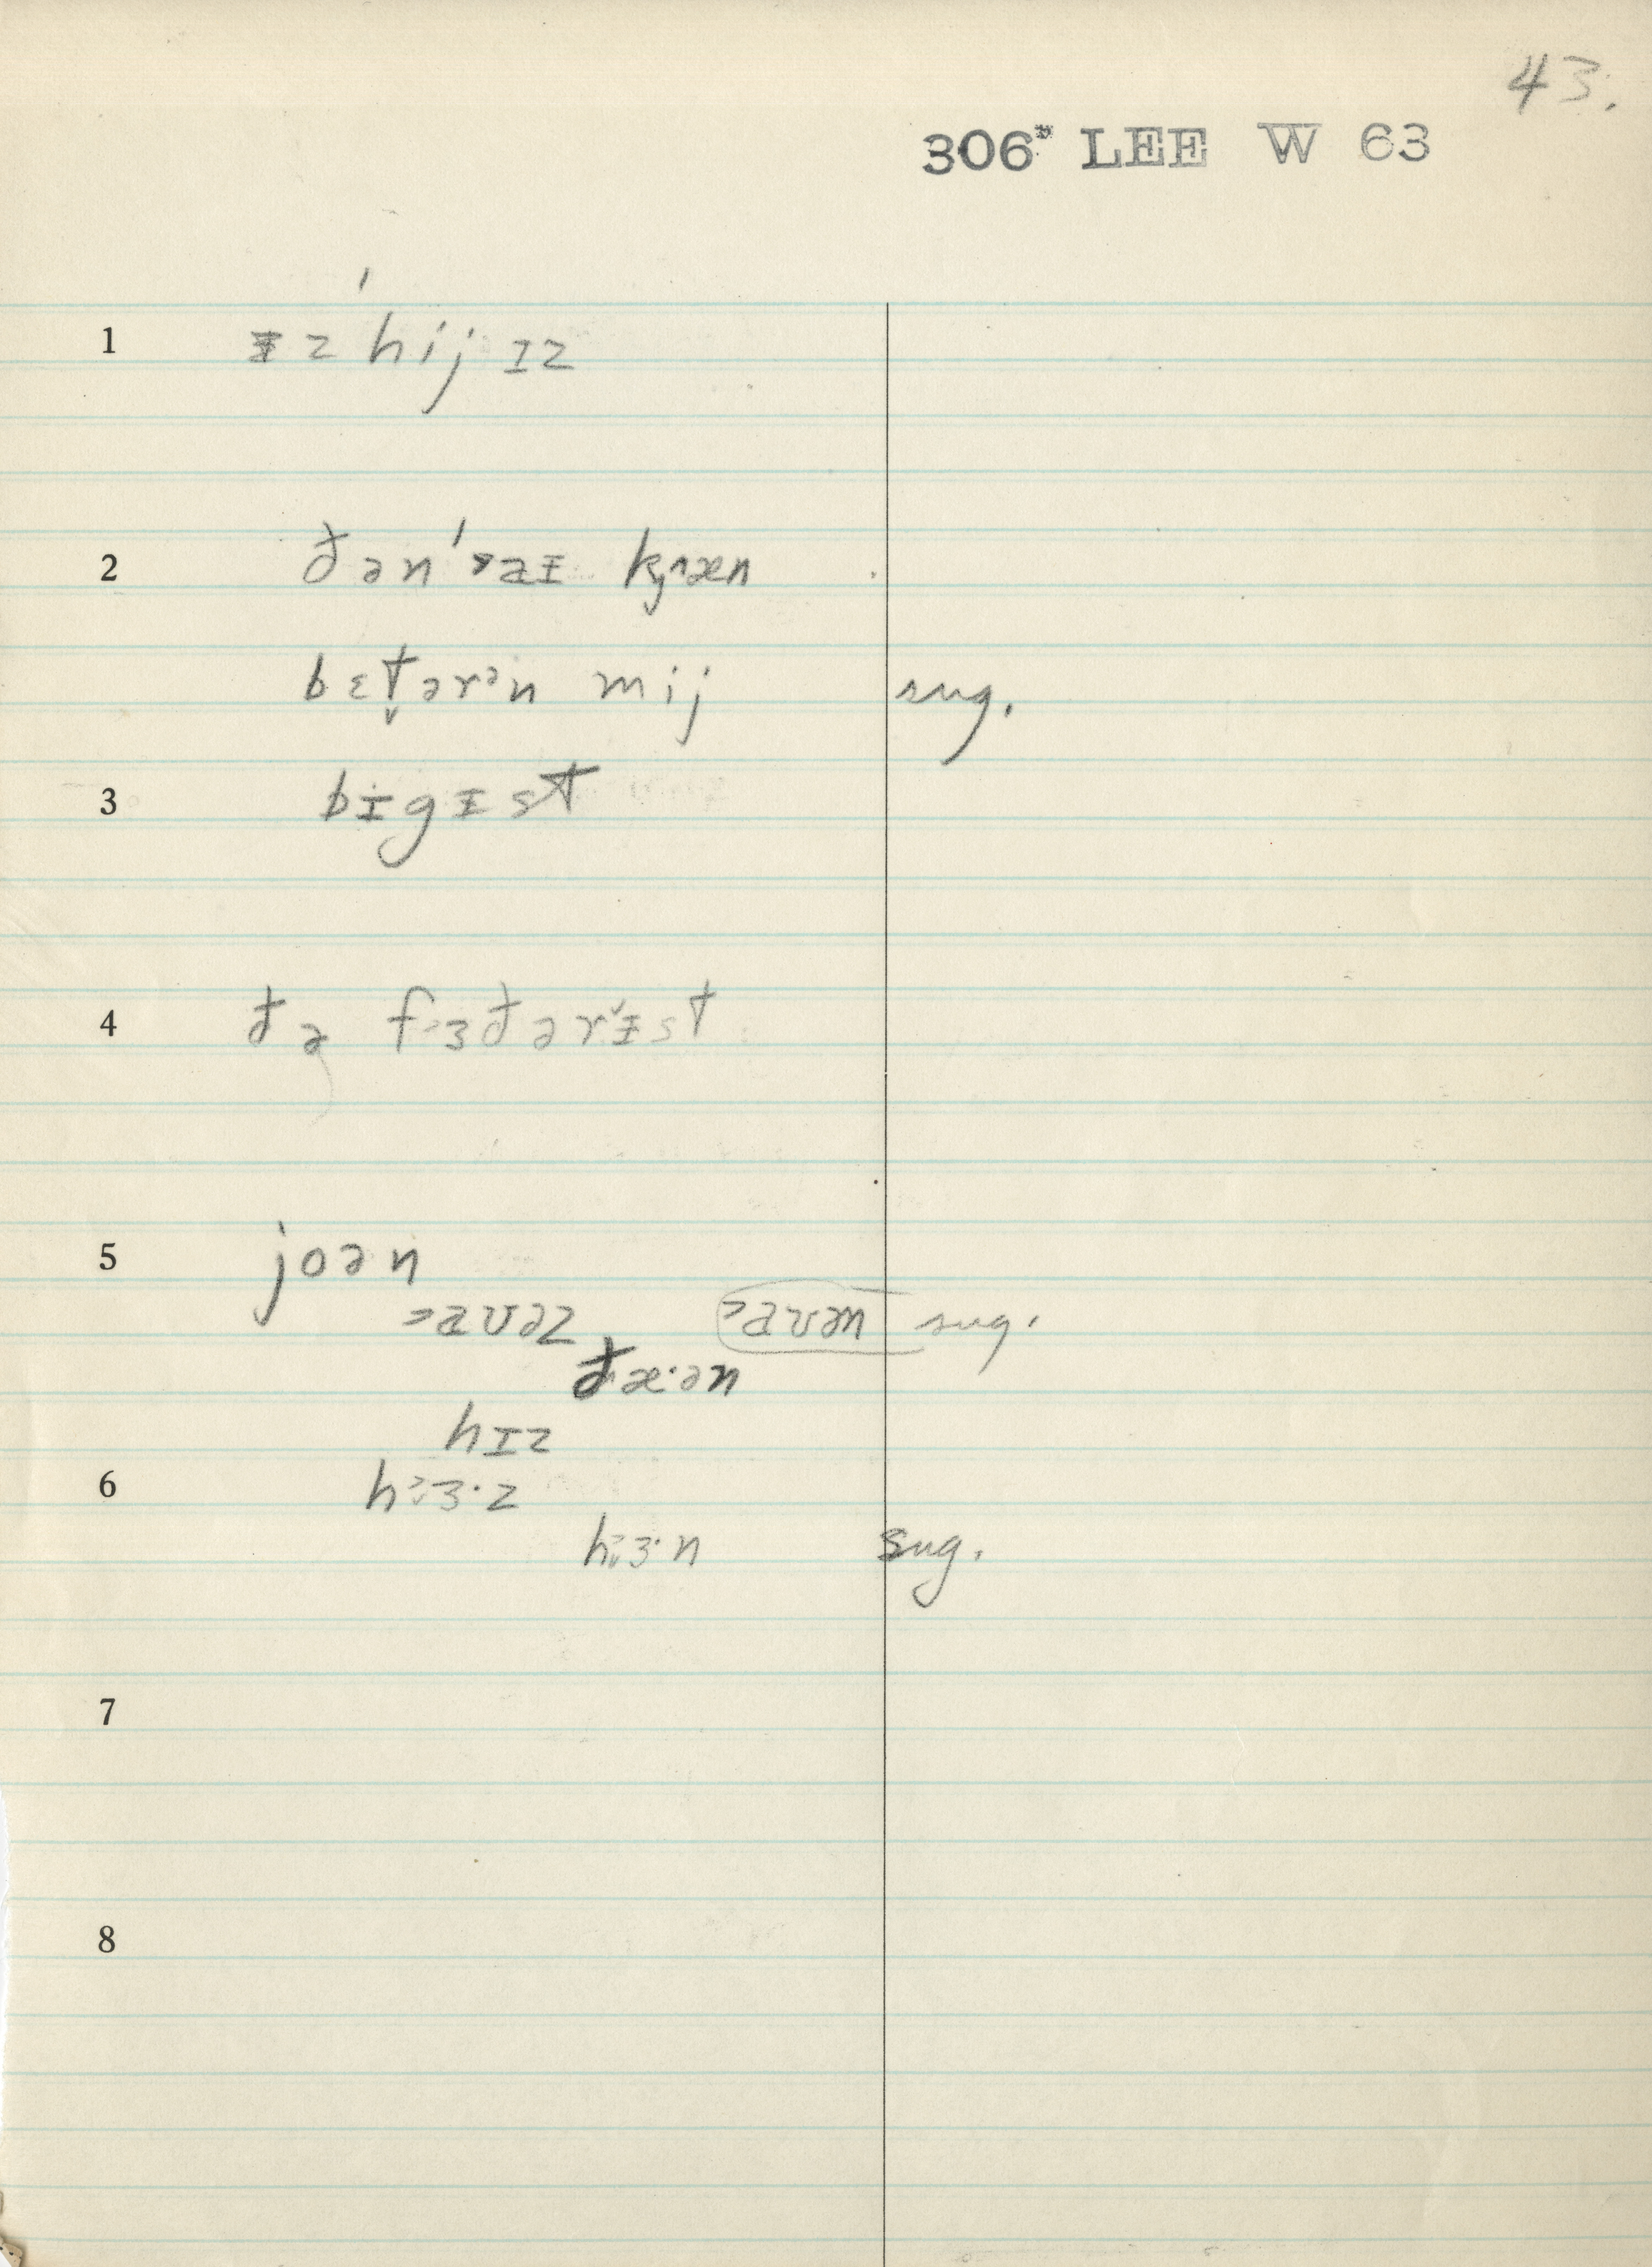 43.
306* LEE W 63
1 ᵻz ˈhij ɪz
2 ðən ˈaᵻ kʲæn
bɛt̬ərᵊn mij sug.
3 bɪgᵻst
4 ðə fɜðərᵻst
5 joən
ᵊaʊəz ᵊaʊən sug.
ðæ·ən
hɪz
6 hᵊɜ·z
hᵊɜ·n sug.
7
8